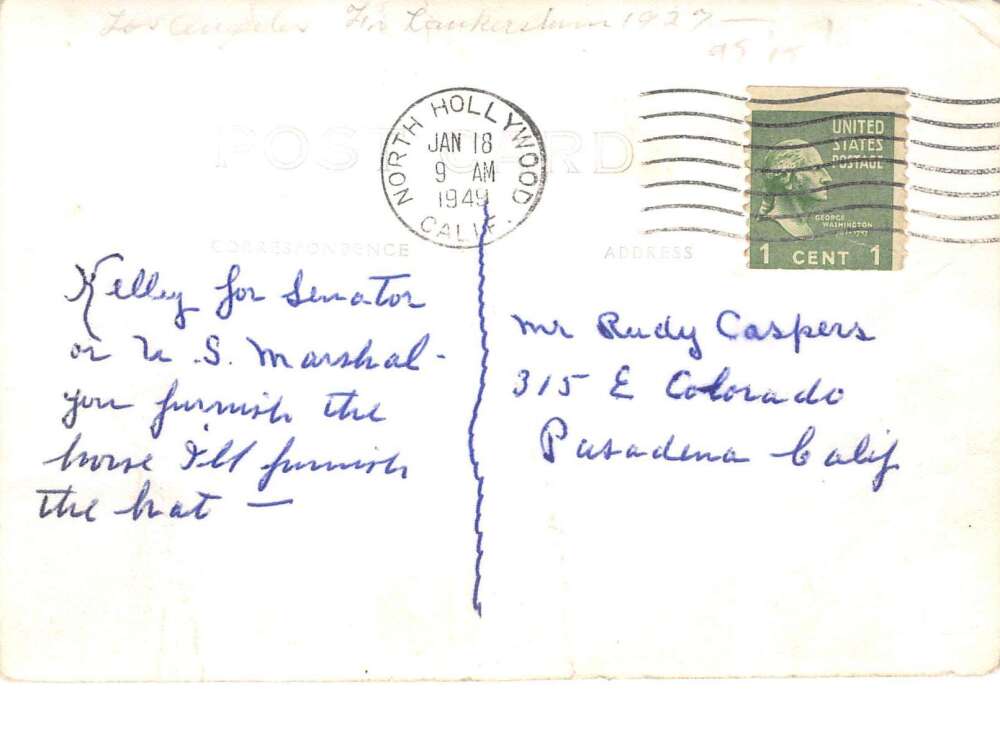 Los Angeles Lankershim 1927 —
POST CARD
NORTH HOLLYWOOD
JAN 18
9 AM
1949
CALIF.
UNITED
STATES
POSTAGE
GEORGE
WASHINGTON
1 CENT 1
CORRESPONDENCE
ADDRESS
Kelley for Senator
or U.S. Marshal -
you furnish the
horse I'll furnish
the hat —
Mr Rudy Caspers
315 E Colorado
Pasadena Calif